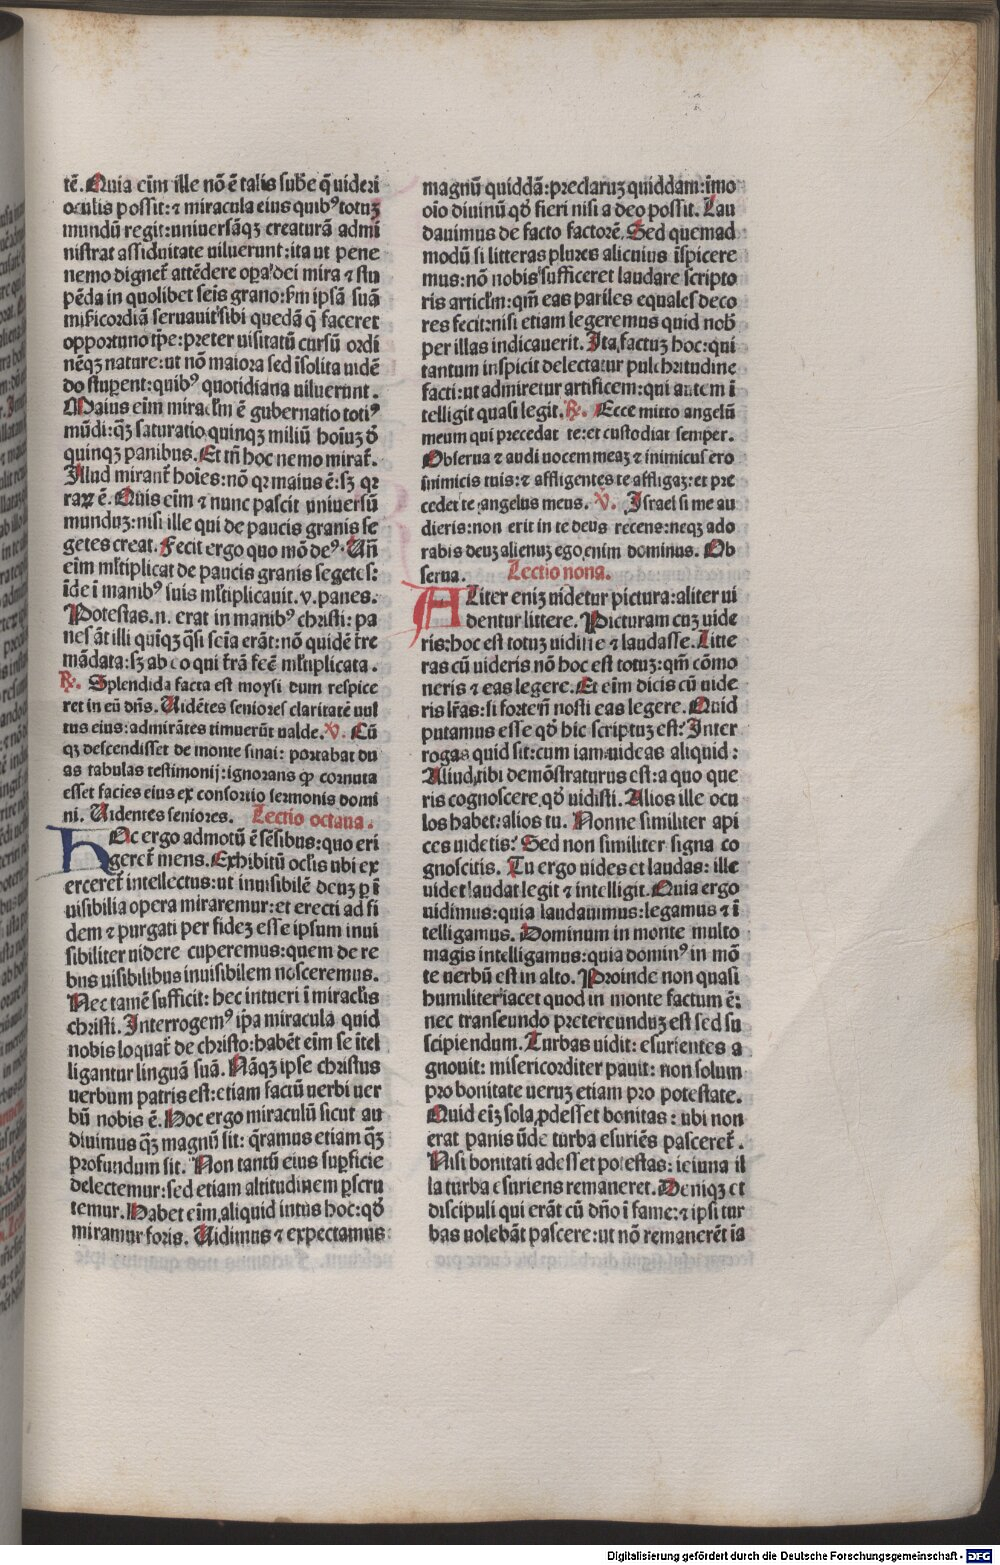 tē. Quia eīm ille nō ē talis subē q̄ uideri
oculis possit: ⁊ miracula eius quibꝰ totuꝫ
mundū regit: uniuersāqꝫ creaturā admī
nistrat assiduitate uiluerunt: ita ut pene
nemo dignet̄ attēdere opa dei mira ⁊ stu
pēda in quolibet seīs grano: ẜm ipsā suā
mīẜicordiā seruauit sibi quedā q̄ faceret
opportuno tp̄e: preter uisitatū cursū ordi
nēqꝫ nature: ut nō maiora sed īsolita uidē
do stuperent: quibꝰ quotidiana uiluerunt.
Maius eīm miracl̄m ē gubernatio totiꝰ
mūdi: qꝫ saturatio quinqꝫ miliū hoīuꝫ ꝺ̄
quinqꝫ panibus. Et tn̄ hoc nemo mirat̄.
Illud mirant̄ hoīes: nō qꝛ maius ē: sꝫ qꝛ
raꝝ ē. Quis eīm ⁊ nunc pascit uniuersū
munduꝫ: nisi ille qui de paucis granis se
getes creat. Fecit ergo quo mō deꝰ. Un̄
eīm ml̄tiplicat de paucis granis segetes:
īde ī manibꝰ suis ml̄tiplicauit. v. panes.
Potestas .n. erat in manibꝰ christi: pa
nes āt illi quīqꝫ q̄si seīa erāt: nō quidē t̄re
mādata: sꝫ ab eo qui t̄rā fec̄ ml̄tiplicata.
℟. Splendida facta est moysi dum respice
ret in eū dn̄s. Uidētes seniores claritatē uul
tus eius: admirātes timuerūt ualde. ℣. Cū
qꝫ descendisset de monte sinai: portabat du
as tabulas testimonij: ignorans ꝙ cornuta
esset facies eius ex consortio sermonis domi
ni. Uidentes seniores. Lectio octaua.
HOc ergo admotū ē sēsibus: quo eri
geret̄ mens. Exhibitū oclīs ubi ex
erceret̄ intellectus: ut inuisibilē deuꝫ ꝑ ī
uisibilia opera miraremur: et erecti ad fi
dem ⁊ purgati per fideꝫ esse ipsum inui
sibiliter uidere cuperemus: quem de re
bus uisibilibus inuisibilem nosceremus.
Nec tamē sufficit: hec intueri ī miracl̄is
christi. Interrogemꝰ ip̄a miracula quid
nobis loquāt̄ de christo: habēt eīm se ītel
ligantur linguā suā. Nāqꝫ ipse christus
uerbum patris est: etiam factū uerbi uer
bū nobis ē. Hoc ergo miraculū sicut au
diuimus qꝫ magnū sit: q̄ramus etiam qꝫ
profundum sit. Non tantū eius suꝑficie
delectemur: sed etiam altitudinem ꝑscru
temur. Habet eīm aliquid intus hoc: qꝺ̄
miramur foris. Uidimus ⁊ expectamus
magnū quiddā: preclaruꝫ quiddam: īmo
oīo diuinū qꝺ̄ fieri nisi a deo possit. Lau
dauimus de facto factorē. Sed quemad
modū si litteras plures alicuius īspicere
mus: nō nobis sufficeret laudare scripto
ris articl̄m: qm̄ eas pariles equales deco
res fecit: nisi etiam legeremus quid nob̄
per illas indicauerit. Ita factuꝫ hoc: qui
tantum inspicit delectatur pulchritudine
facti: ut admiretur artificem: qui autem ī
telligit quasi legit. ℟. Ecce mitto angelū
meum qui precedat te: et custodiat semper.
Obserua ⁊ audi uocem meaꝫ ⁊ inimicus ero
inimicis tuis: ⁊ affligentes te affligaꝫ: et pre
cedet te angelus meus. ℣. Israel si me au
dieris: non erit in te deus recens: neqꝫ ado
rabis deuꝫ alienuꝫ ego enim dominus. Ob
serua. Lectio nona.
ALiter eniꝫ uidetur pictura: aliter ui
dentur littere. Picturam cuꝫ uide
ris: hoc est totuꝫ uidisse ⁊ laudasse. Litte
ras cū uideris nō hoc est totuꝫ: qm̄ cōmo
neris ⁊ eas legere. Et eīm dicis cū uide
ris lr̄as: si forte n̄ nosti eas legere. Quid
putamus esse qꝺ̄ hic scriptuꝫ est? Inter
rogas quid sit: cum iam uideas aliquid:
Aliud tibi demōstraturus est: a quo que
ris cognoscere qꝺ̄ uidisti. Alios ille ocu
los habet: alios tu. Nonne similiter api
ces uidetis? Sed non similiter signa co
gnoscitis. Tu ergo uides et laudas: ille
uidet laudat legit ⁊ intelligit. Quia ergo
uidimus: quia laudauimus: legamus ⁊ ī
telligamus. Dominum in monte multo
magis intelligamus: quia dominꝰ in mō
te uerbū est in alto. Proinde non quasi
humiliter iacet quod in monte factum ē:
nec transeundo pretereunduꝫ est sed su
scipiendum. Turbas uidit: esurientes a
gnouit: misericorditer pauit: non solum
pro bonitate ueruꝫ etiam pro potestate.
Quid eīꝫ sola ꝓdesset bonitas: ubi non
erat panis ūde turba esuriēs pasceret̄.
Nisi bonitati adesset potestas: ieiuna il
la turba esuriens remaneret. Deniqꝫ et
discipuli qui erāt cū dn̄o ī fame: ⁊ ipsi tur
bas uolebāt pascere: ut nō remanerēt īa
Digitalisierung gefördert durch die Deutsche Forschungsgemeinschaft - DFG